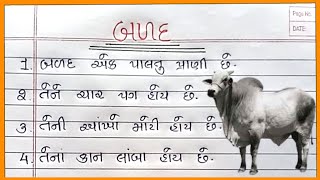 બળદ
Page No.
DATE:
1. બળદ એક પાલતુ પ્રાણી છે.
૨. તેને ચાર પગ હોય છે.
૩. તેની આંખો મોટી હોય છે.
4. તેનાં કાન લાંબા હોય છે.